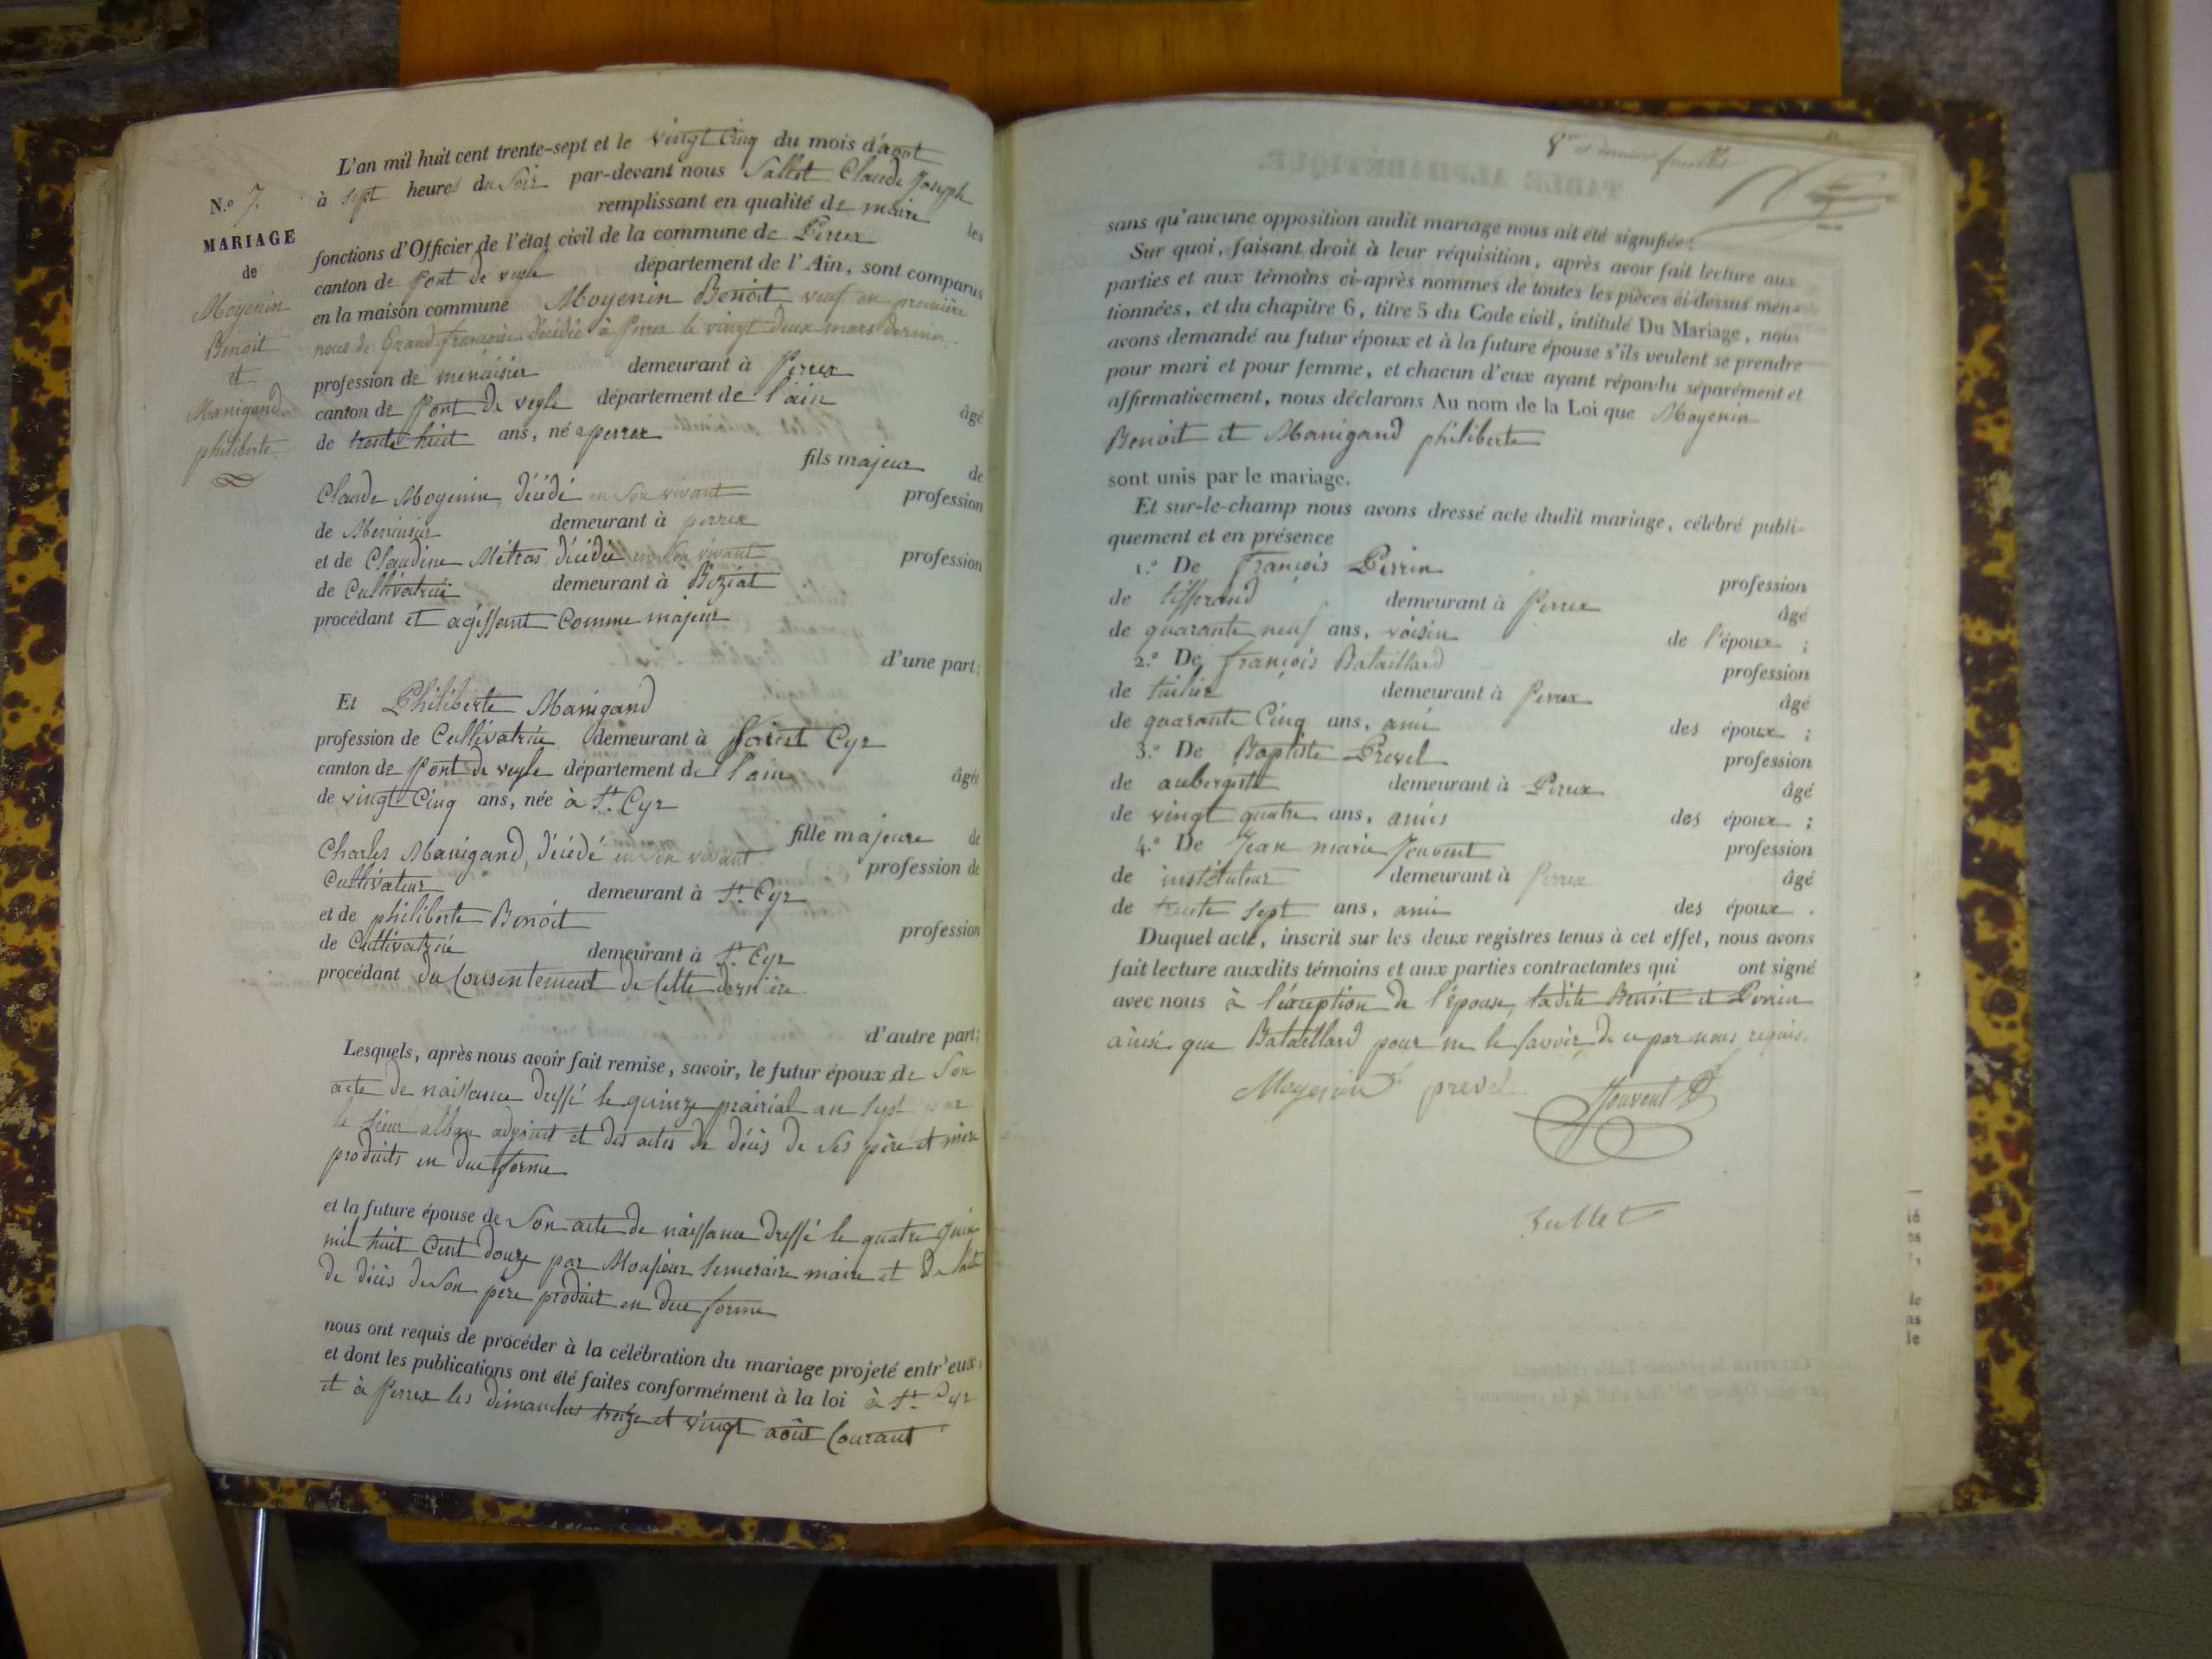 N.º 7.
MARIAGE
de
Moyenin
Benoit
et
Manigand
philiberte
L'an mil huit cent trente-sept et le vingt Cinq du mois d'août
à sept heures du Soir par-devant nous Sallet Claude Joseph
remplissant en qualité de maire les
fonctions d'Officier de l'état civil de la commune de Perrex
canton de Pont de veyle département de l'Ain, sont comparus
en la maison commune Moyenin Benoit veuf en première
noces de Grand françoise décédée à Perrex le vingt deux mars dernier
profession de menuisier demeurant à Perrex
canton de Pont de veyle département de l'ain âgé
de trente huit ans, né à perrex
fils majeur de
Claude Moyenin, décédé en Son vivant profession
de Menuisier demeurant à perrex
et de Claudine Métras décédée en Son vivant profession
de Cultivatrice demeurant à Biziat
procédant et agissant Comme majeur
d'une part;
Et Philiberte Manigand
profession de Cultivatrice demeurant à Saint Cyr
canton de Pont de veyle département de l'ain âgée
de vingt Cinq ans, née à St. Cyr
fille majeure de
Charles Manigand, décédé en Son vivant profession de
Cultivateur demeurant à St. Cyr
et de philiberte Benoit profession
de Cultivatrice demeurant à St. Cyr
procédant du Consentement de Cette dernière
d'autre part;
Lesquels, après nous avoir fait remise, savoir, le futur époux de Son
acte de naissance dressé le quinze prairial an Sept par
le Sieur adjoint et des actes de décès de Ses père et mère
produits en due forme
et la future épouse de Son acte de naissance dressé le quatre Juin
mil huit Cent douze par Monsieur maire et de l'acte
de décès de Son père produit en due forme
nous ont requis de procéder à la célébration du mariage projeté entr'eux,
et dont les publications ont été faites conformément à la loi à St. Cyr
et à Perrex les dimanches treize et vingt août Courant
8me et dernier feuille
sans qu'aucune opposition audit mariage nous ait été signifiée.
Sur quoi, faisant droit à leur réquisition, après avoir fait lecture aux
parties et aux témoins ci-après nommés de toutes les pièces ci-dessus men-
tionnées, et du chapitre 6, titre 5 du Code civil, intitulé Du Mariage, nous
avons demandé au futur époux et à la future épouse s'ils veulent se prendre
pour mari et pour femme, et chacun d'eux ayant répondu séparément et
affirmativement, nous déclarons Au nom de la Loi que Moyenin
Benoit et Manigand philiberte
sont unis par le mariage.
Et sur-le-champ nous avons dressé acte dudit mariage, célébré publi-
quement et en présence
1.º De François Perrin profession
de tisserand demeurant à Perrex âgé
de quarante neuf ans, voisin de l'époux ;
2.º De françois Bataillard profession
de tuilier demeurant à Perrex âgé
de quarante Cinq ans, ami des époux ;
3.º De Baptiste Prevel profession
de aubergiste demeurant à Perrex âgé
de vingt quatre ans, amis des époux ;
4.º De Jean marie Jouvent profession
de instituteur demeurant à Perrex âgé
de trente sept ans, ami des époux .
Duquel acte, inscrit sur les deux registres tenus à cet effet, nous avons
fait lecture auxdits témoins et aux parties contractantes qui ont signé
avec nous à l'éxception de l'épouse, ladite Benoit et Perrin
ainsi que Bataillard pour ne le savoir de ce par nous requis.
Moyenin prevel Jouvent
Sallet